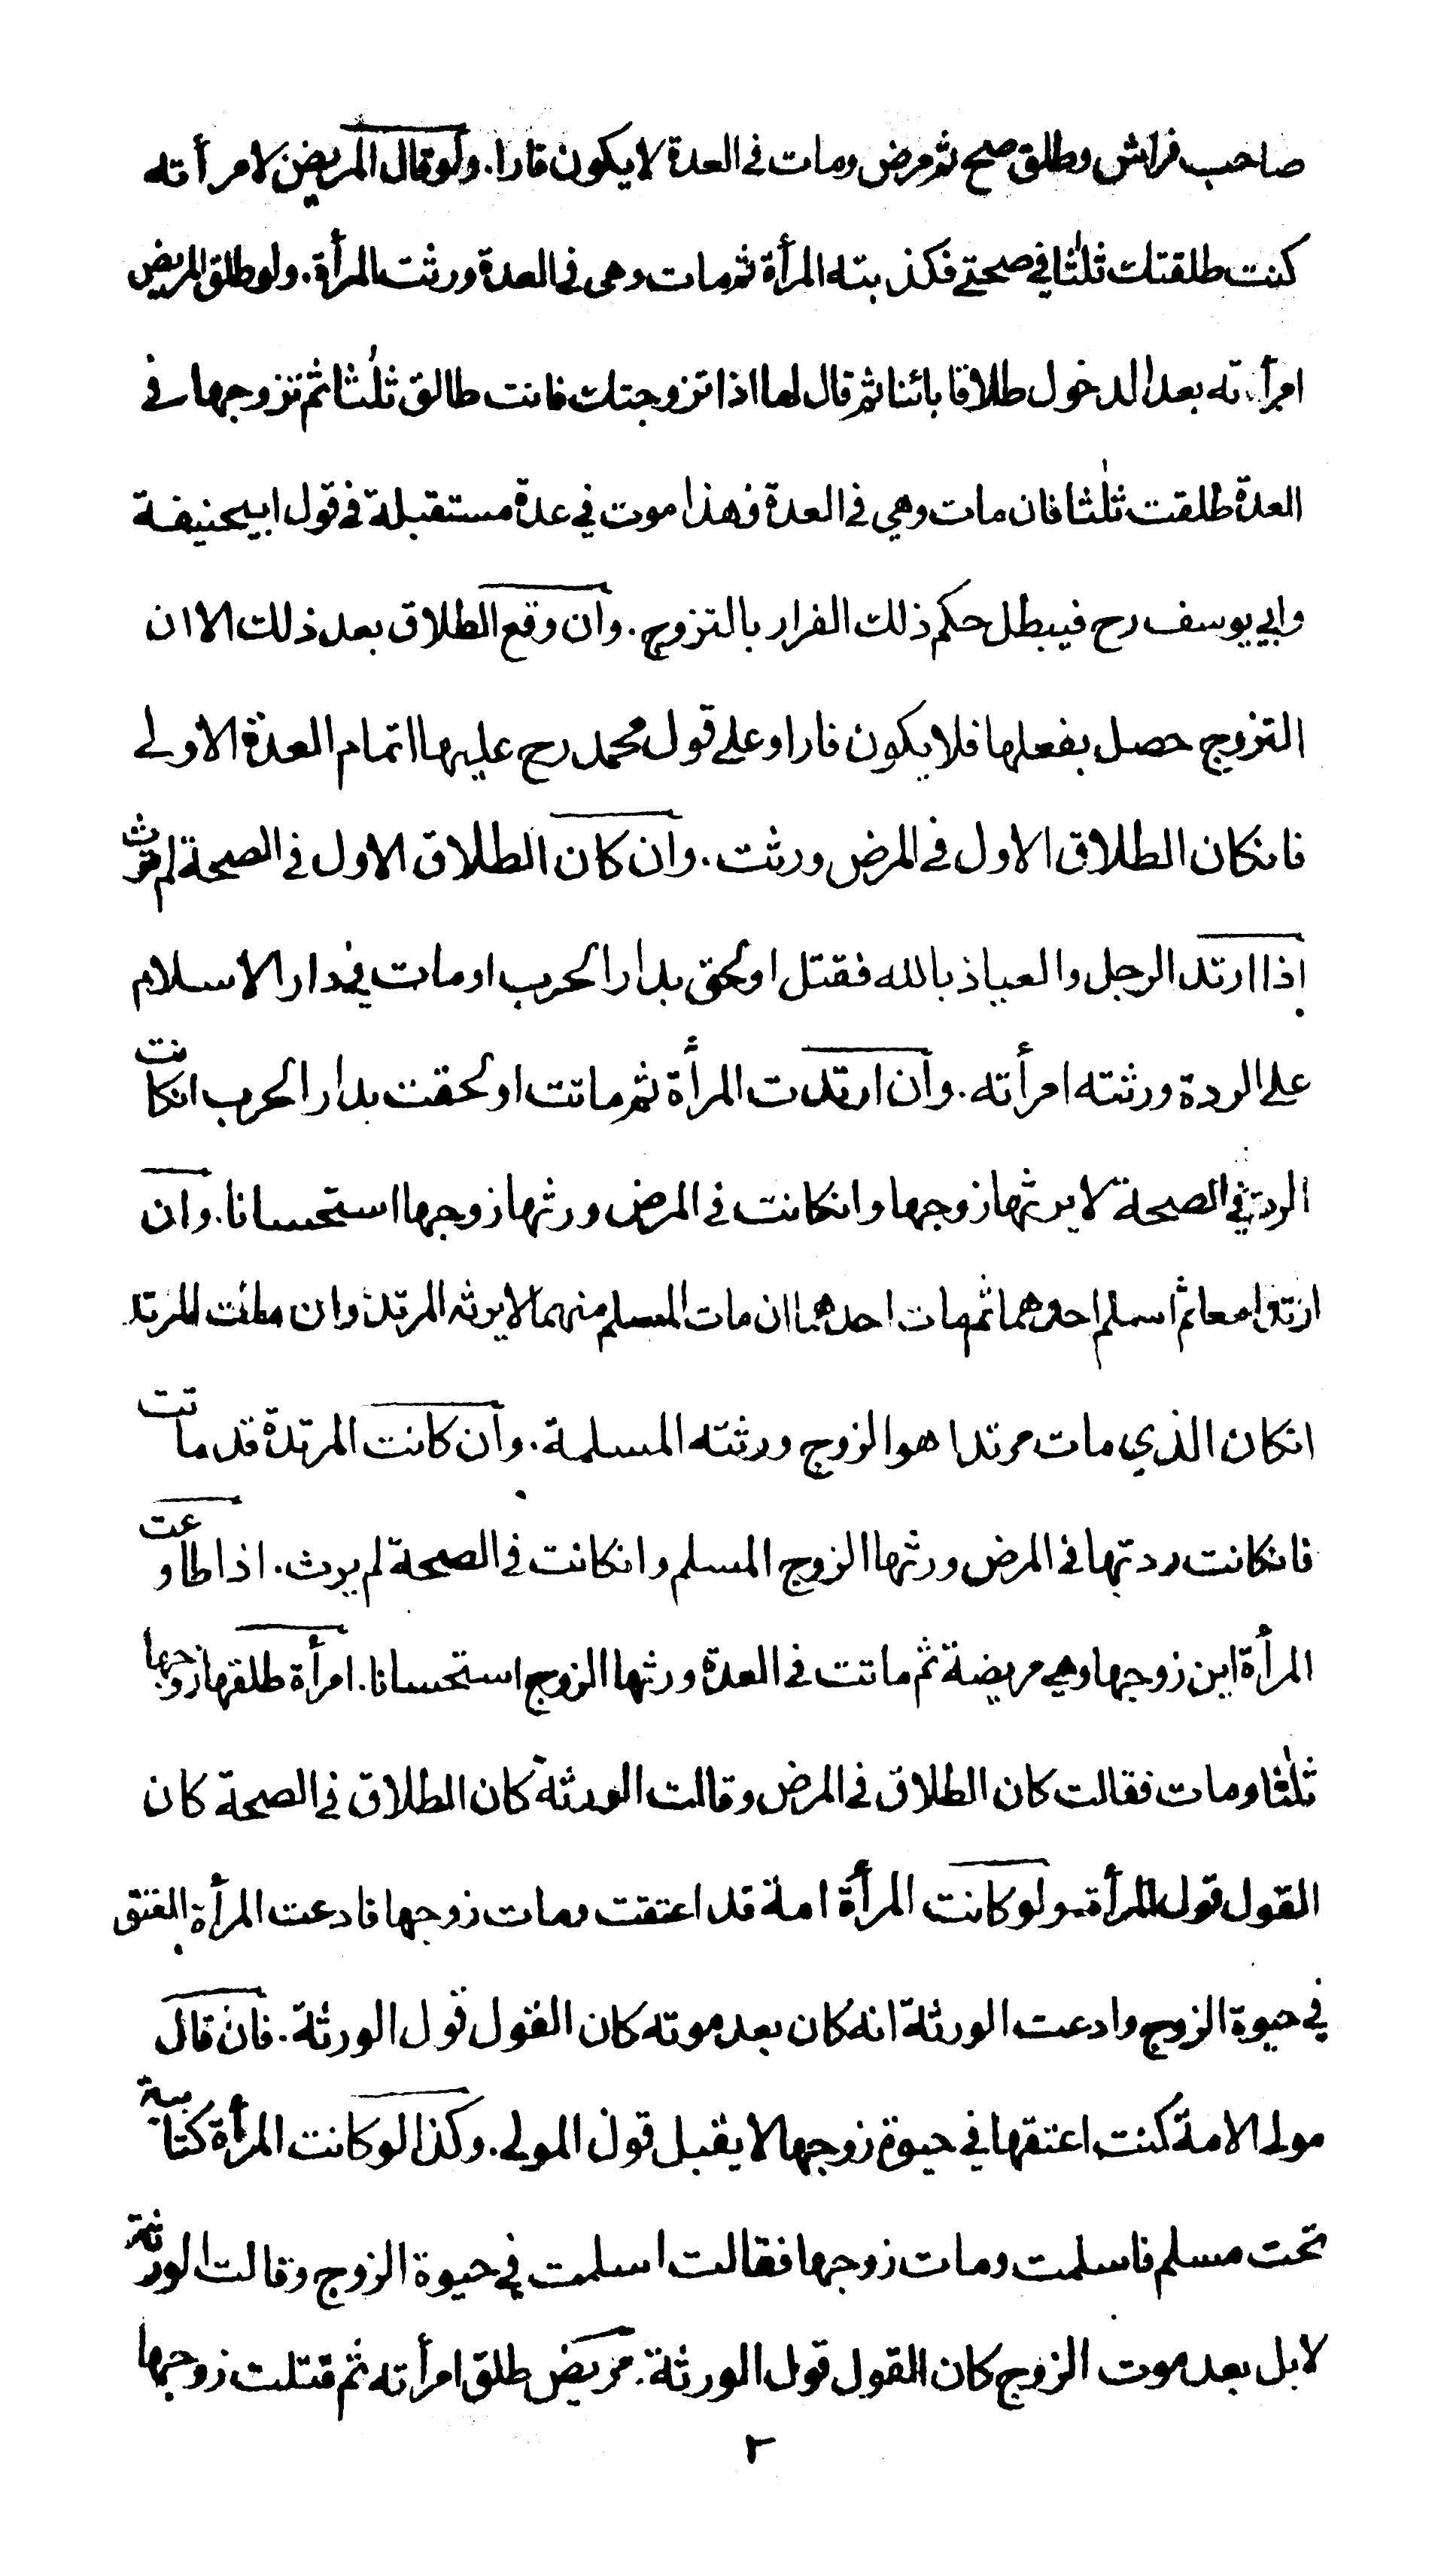 صاحب فراش وطلق صح ثم مرض ومات في العدة لا يكون فارا. ولو قال المريض لامرأته
كنت طلقتك ثلثا في صحتي فكذبته المرأة ثم مات وهي في العدة ورثت المرأة. ولو طلق المريض
امرأته بعد الدخول طلاقا بائنا ثم قال لها اذا تزوجتك فانت طالق ثلثا ثم تزوجها في
العدة طلقت ثلثا فان مات وهي في العدة فهذا موت في عدة مستقبلة في قول ابيحنيفة
وابي يوسف رح فيبطل حكم ذلك الفرار بالتزوج. وان وقع الطلاق بعد ذلك الا ان
التزوج حصل بفعلها فلا يكون فارا وعلى قول محمد رح عليها اتمام العدة الاولى
فانكان الطلاق الاول في المرض ورثت. وان كان الطلاق الاول في الصحة لم ترث
اذا ارتد الرجل والعياذ بالله فقتل او لحق بدار الحرب او مات في دار الاسلام
على الردة ورثته امرأته. وان ارتدت المرأة ثم ماتت او لحقت بدار الحرب انكانت
الردة في الصحة لا يرثها زوجها وانكانت في المرض ورثها زوجها استحسانا. وان
ارتدا معا ثم اسلم احدهما ثم مات احدهما ان مات المسلم منهما لا يرثه المرتد وان مات المرتد
انكان الذي مات مرتدا هو الزوج ورثته المسلمة. وان كانت المرتدة قد ماتت
فانكانت ردتها في المرض ورثها الزوج المسلم وانكانت في الصحة لم يرث. اذا طاوعت
المرأة ابن زوجها وهي مريضة ثم ماتت في العدة ورثها الزوج استحسانا. امرأة طلقها زوجها
ثلثا ومات فقالت كان الطلاق في المرض وقالت الورثة كان الطلاق في الصحة كان
القول قول المرأة. ولو كانت المرأة امة قد اعتقت ومات زوجها فادعت المرأة العتق
في حيوة الزوج وادعت الورثة انه كان بعد موته كان القول قول الورثة. فان قال
مولى الامة كنت اعتقتها في حيوة زوجها لا يقبل قول المولى. وكذا لو كانت المرأة كتابية
تحت مسلم فاسلمت ومات زوجها فقالت اسلمت في حيوة الزوج وقالت الورثة
لا بل بعد موت الزوج كان القول قول الورثة. مريض طلق امرأته ثم قتلت زوجها
٢